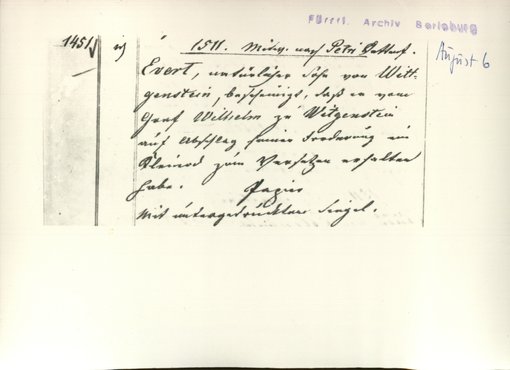 Fürstl. Archiv Berleburg
1451
1511. Mitw. nach Petri Kettenf.
August 6
Evert, natürlicher Sohn von Witt-
genstein, bescheinigt, daß er vom
Graf Wilhelm zu Witgenstein
auf Abschlag seiner Forderung ein
Kleinod zum Versetzen erhalten
habe.
Papier
Mit untergedrücktem Siegel.